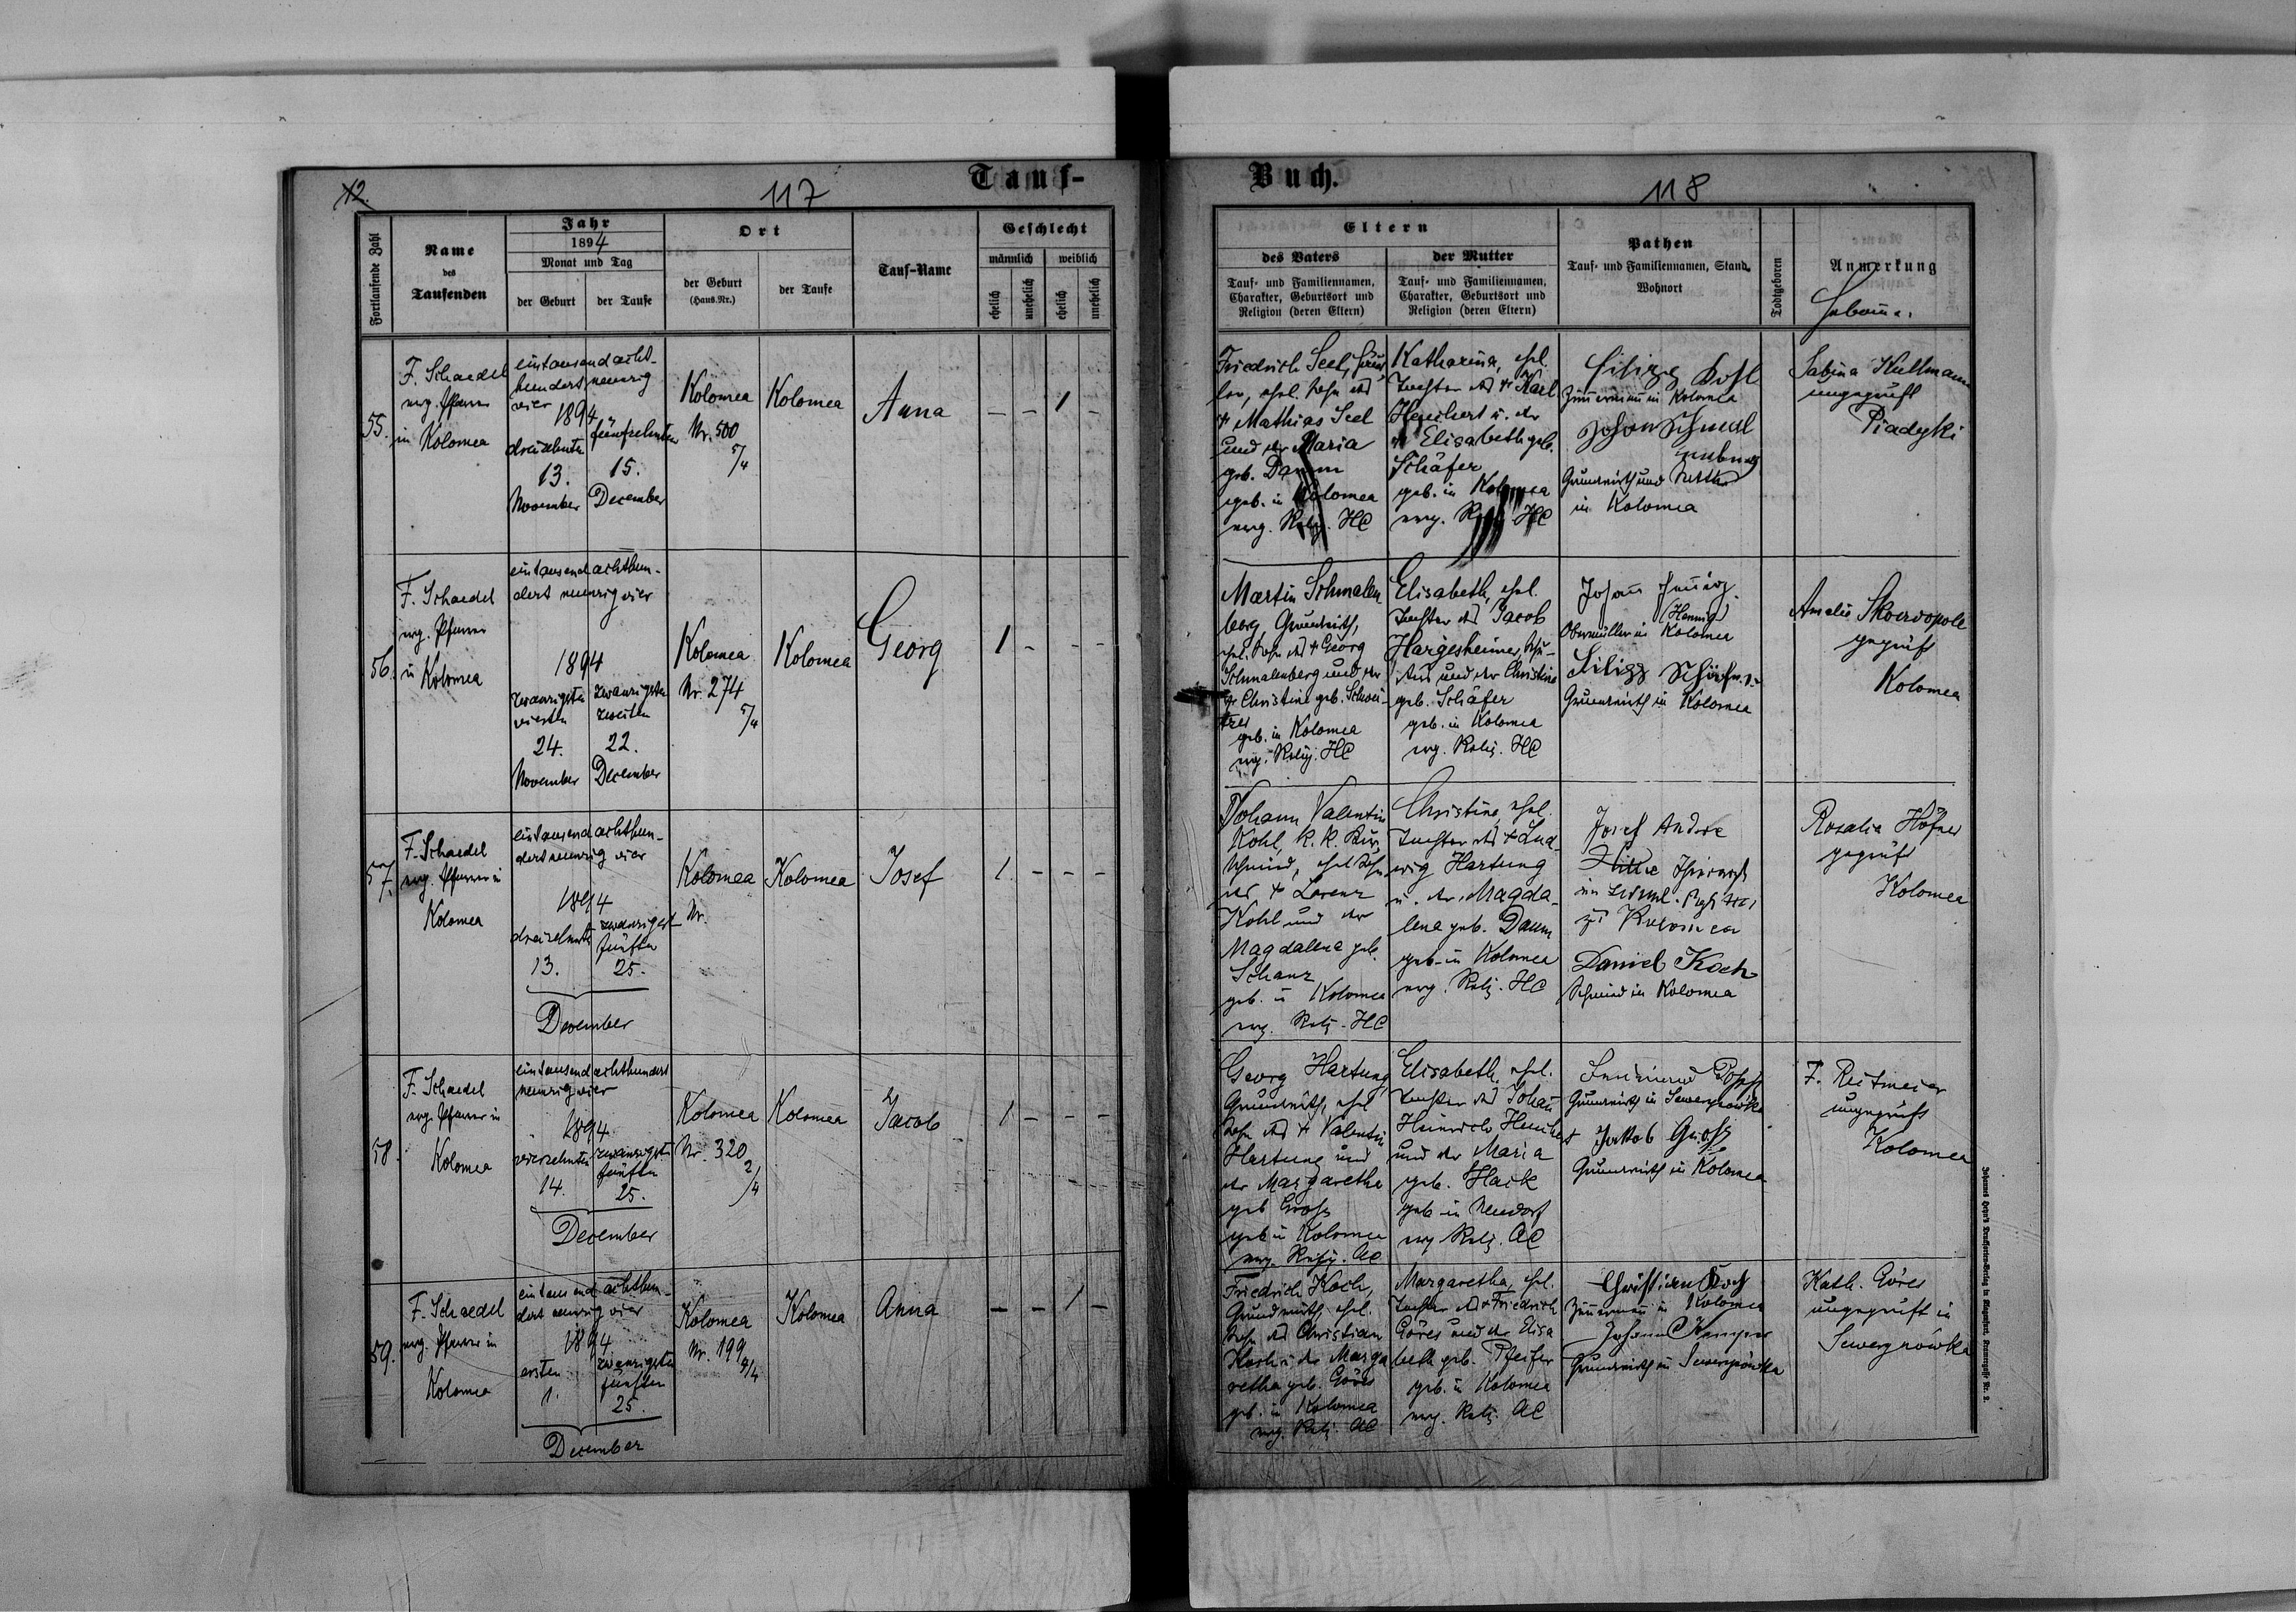 12.
117
Tauf-
Fortlaufende Zahl
Name
des
Taufenden
Jahr
1894
Monat und Tag
der Geburt
der Taufe
Ort
der Geburt
(Haus-Nr.)
der Taufe
Tauf-Name
Geschlecht
männlich
weiblich
ehelich
unehelich
ehelich
unehelich
55.
F. Schaedel
evg. Pfarrer
in Kolomea
eintausendacht-
hundertneunzig
vier 1894
dreizehnten
13.
November
fünfzehnten
15.
December
Kolomea
Nr. 500
5/4
Kolomea
Anna
– – 1 –
56.
F. Schaedel
evg. Pfarrer
in Kolomea
eintausendachthun-
dert neunzig vier
1894
zwanzigsten
vierten
24.
November
zwanzigsten
zweiten
22.
December
Kolomea
Nr. 274
5/4
Kolomea
Georg
1 – – –
57.
F. Schaedel
evg. Pfarrer in
Kolomea
eintausendachthun-
dert neunzig vier
1894
dreizehnten
13.
zwanzigst
fünften
25.
December
Kolomea
Nr.
Kolomea
Josef
1. – – –
58.
F. Schaedel
evg. Pfarrer in
Kolomea
eintausendachthundert
neunzig vier
1894
vierzehnten
14.
zwanzigsten
fünften
25.
December
Kolomea
Nr. 320
2/4
Kolomea
Jacob
1 – – –
59.
F. Schaedel
evg. Pfarrer in
Kolomea
eintausendachthun-
dert neunzig vier
1894
ersten
1.
zwanzigsten
fünften
25.
December
Kolomea
Nr. 199
4/4
Kolomea
Anna
– – 1 –
Buch.
118
Eltern
des Vaters
Tauf- und Familiennamen,
Charakter, Geburtsort und
Religion (deren Eltern)
der Mutter
Tauf- und Familiennamen,
Charakter, Geburtsort und
Religion (deren Eltern)
Pathen
Tauf- und Familiennamen, Stand,
Wohnort
Todtgeboren
Anmerkung
Hebamme
Friedrich Seel,
ehel. Sohn des
† Mathias Seel
und der Maria
geb. Damm
geb. in Kolomea
evg. Relig. HC
Katharina, ehel.
Tochter des † Karl
Heuchert u. der
† Elisabeth geb.
Schäfer
geb. in Kolomea
evg. Relig. HC
Filipp Kohl
Zimmermann in Kolomea
Johan Schmal
enberg
Grundwirth und
in Kolomea
Sabina Kullmann
ungeprüft
Piadyki
Martin Schmalen
berg Grundwirth,
ehel. Sohn des † Georg
Schmalenberg und der
† Christine geb. Schwei-
tzer
geb. in Kolomea
evg. Relig. HC
Elisabeth, ehel.
Tochter des Jacob
Hargesheimer, Schu-
und der Christine
geb. Schäfer
geb. in Kolomea
evg. Relig. HC
Johann Hennig
(Hennig)
Obermüller in Kolomea
Filipp Schäfer
Grundwirth in Kolomea
Amelie Skowopole
geprüft
Kolomea
Johann Valentin
Kohl, k. k. Kur-
schmied, ehel Sohn
des † Lorenz
Kohl und der
Magdalena geb.
Schanz
geb. in Kolomea
evg. Relig. HC
Christine, ehel.
Tochter des † Lud-
wig Hartung
u. der Magda-
lena geb. Daum
geb. in Kolomea
evg. Relig. HC
Josef Andre
zu Kolomea
Daniel Koch
Schmied in Kolomea
Rosalia Höfner
geprüft
Kolomea
Georg Hartung
Grundwirth, ehel
Sohn des † Valentin
Hartung und
der Margaretha
geb Gross
geb in Kolomea
evg. Relig. AC
Elisabeth, ehel.
Tochter des Johann
Heinrich Heucher
t
und der Maria
geb. Hack
geb in Neudorf
evg Relig. AC
Grundwirth in Sewerynówka
Jakob Gross
Grundwirth in Kolomea
F. Reitmeier
ungeprüft
Kolomea
Friedrich Koch,
Grundwirth, ehel.
Sohn des Christian
Koch u. der Marga
retha geb. Göres
geb. in Kolomea
evg. Relig. AC
Margaretha, ehel.
Tochter des † Friedrich
Göres und der Elisa
beth geb. Pfeifer
geb. in Kolomea
evg. Relig. AC
Christian Koch
Zimmermann in Kolomea
Johann Kemper
Grundwirth in Sewerynówka
Kath. Göres
ungeprüft in
Sewerynówka